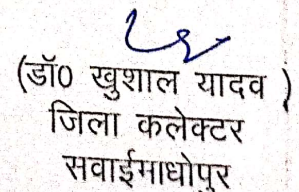 (डॉ0 खुशाल यादव )
जिला कलेक्टर
सवाईमाधोपुर